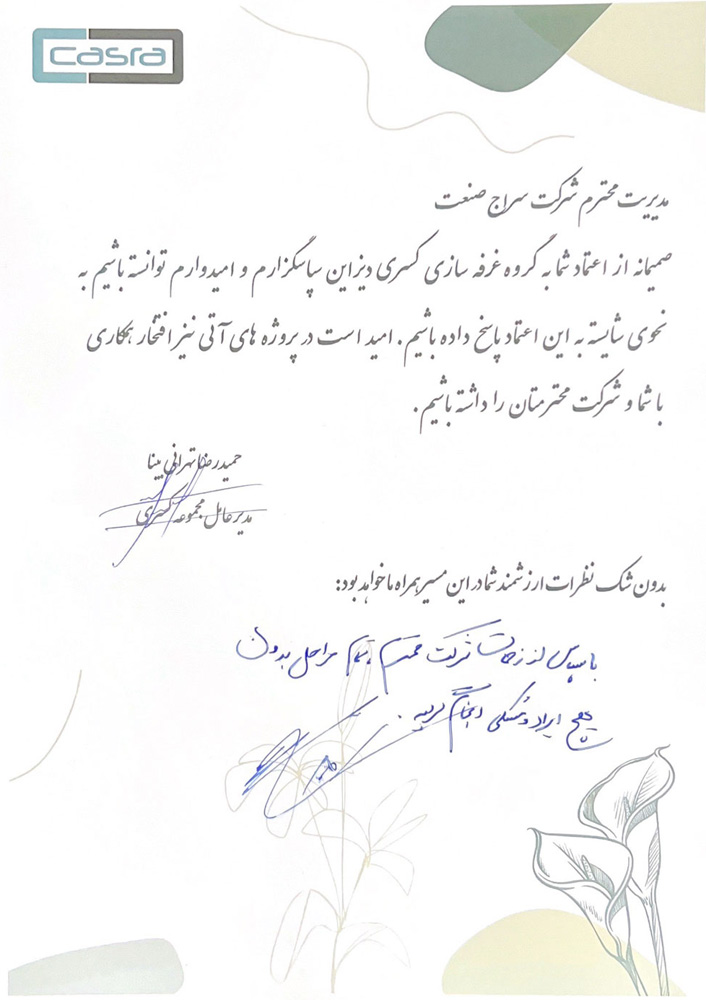 casra
مدیریت محترم شرکت سراج صنعت
صمیمانه از اعتماد شما به گروه غرفه سازی کسری دیزاین سپاسگزارم و امیدوارم توانسته باشیم به
نحوی شایسته به این اعتماد پاسخ داده باشیم. امید است در پروژه های آتی نیز افتخار همکاری
با شما و شرکت محترمتان را داشته باشیم.
حمیدرضا تهرانی بینا
مدیرعامل مجموعه کسری
بدون شک نظرات ارزشمند شما در این مسیر همراه ما خواهد بود:
با سپاس از زحمات شرکت محترم تمام مراحل بدون
هیچ ایراد و مشکلی انجام گردید.